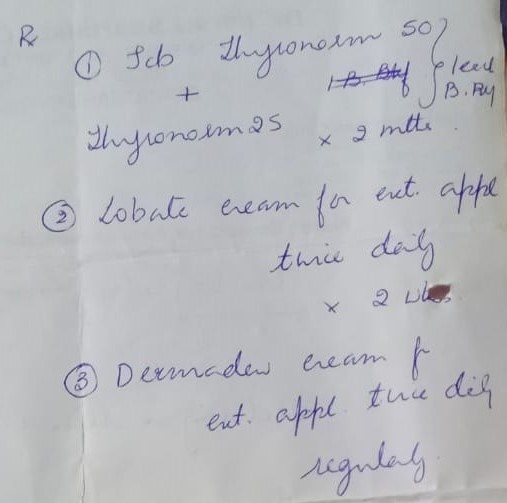 Rx
① Tab Thyronorm 50
+
Thyronorm 25 × 2 mths.
② Lobate cream for ext. appl
twice daily
× 2 wks.
③ Dermadew cream f
ext. appl. twice daily
regularly.